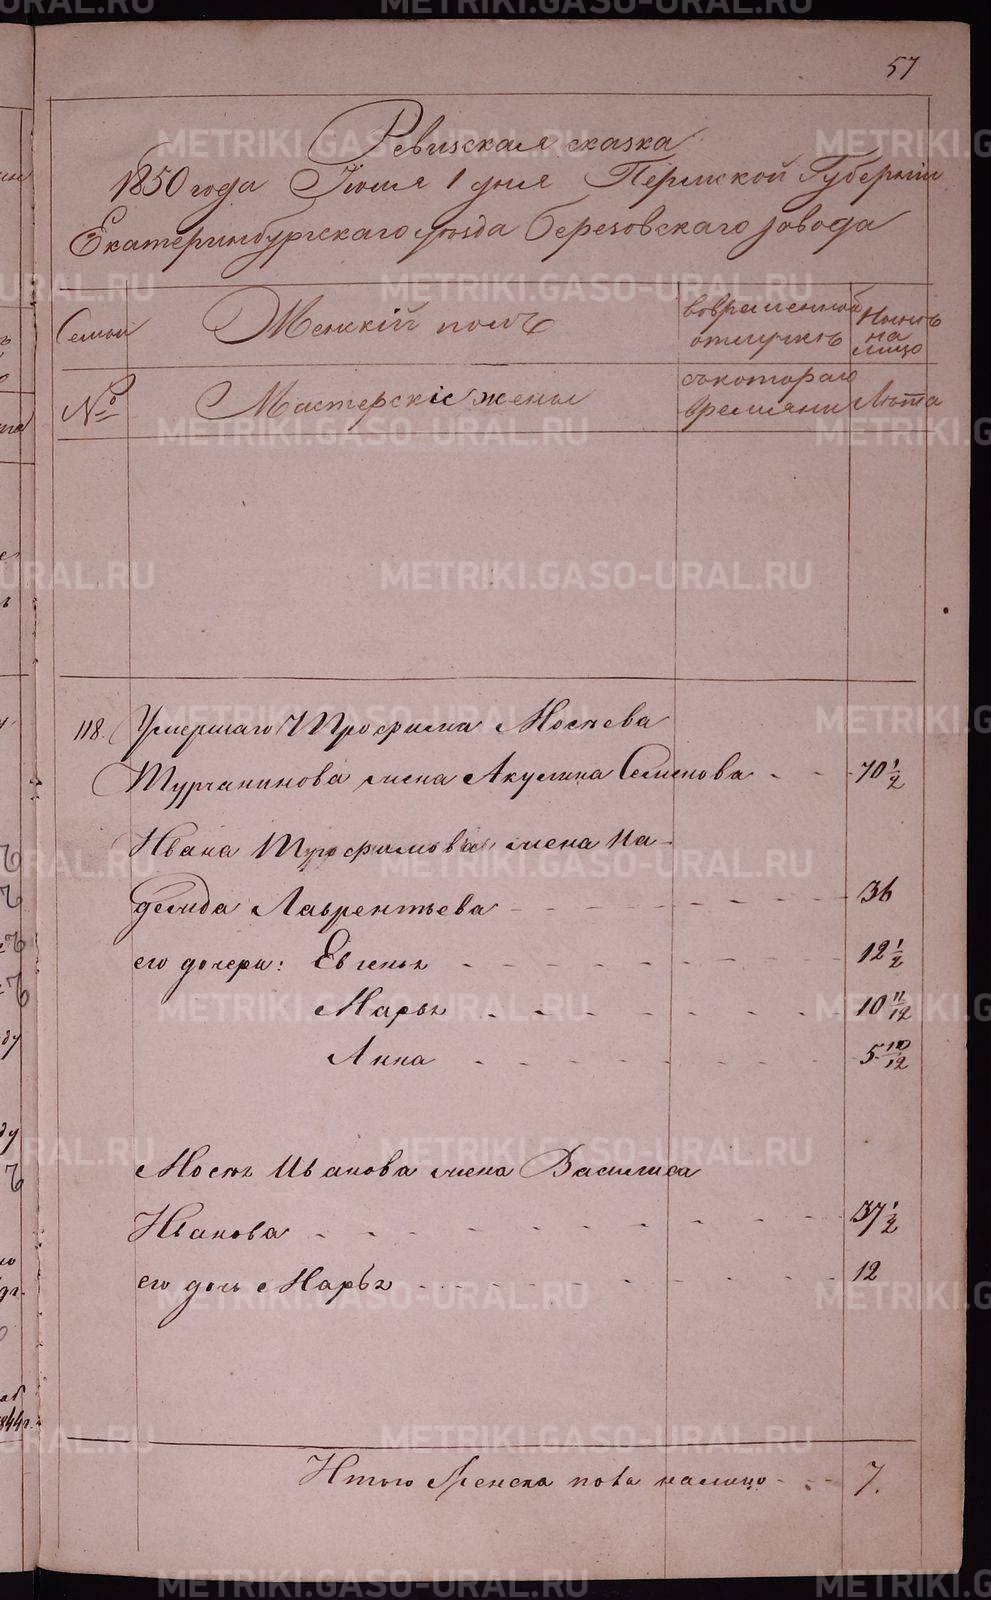 57
Ревизская сказка
1850 года Июля 1 дня Пермской Губернии
Екатеринбургскаго уезда Березовскаго завода
Семьи
Женскій полъ
во временной отлучкѣ
Нынѣ на лицо
№
Мастерскіе жены
съ котораго времяни
Лѣта
118. Умершаго Трофима Мосѣева
Турчанинова жена Акулина Семенова - - - 70 1/2
Ивана Трофимова жена На-
дежда Лаврентьева - - - - - - - - 36
его дочери: Евгенья - - - - - - - - - 12 1/2
Марья - - - - - - - - 10 11/12
Анна - - - - - - - - 5 10/12
Мосея Иванова жена Василиса
Иванова - - - - - - - - - - - 37 1/2
его дочь Марья - - - - - - - - - - 12
Итого Женска пола налицо - - - 7.
METRIKI.GASO-URAL.RU